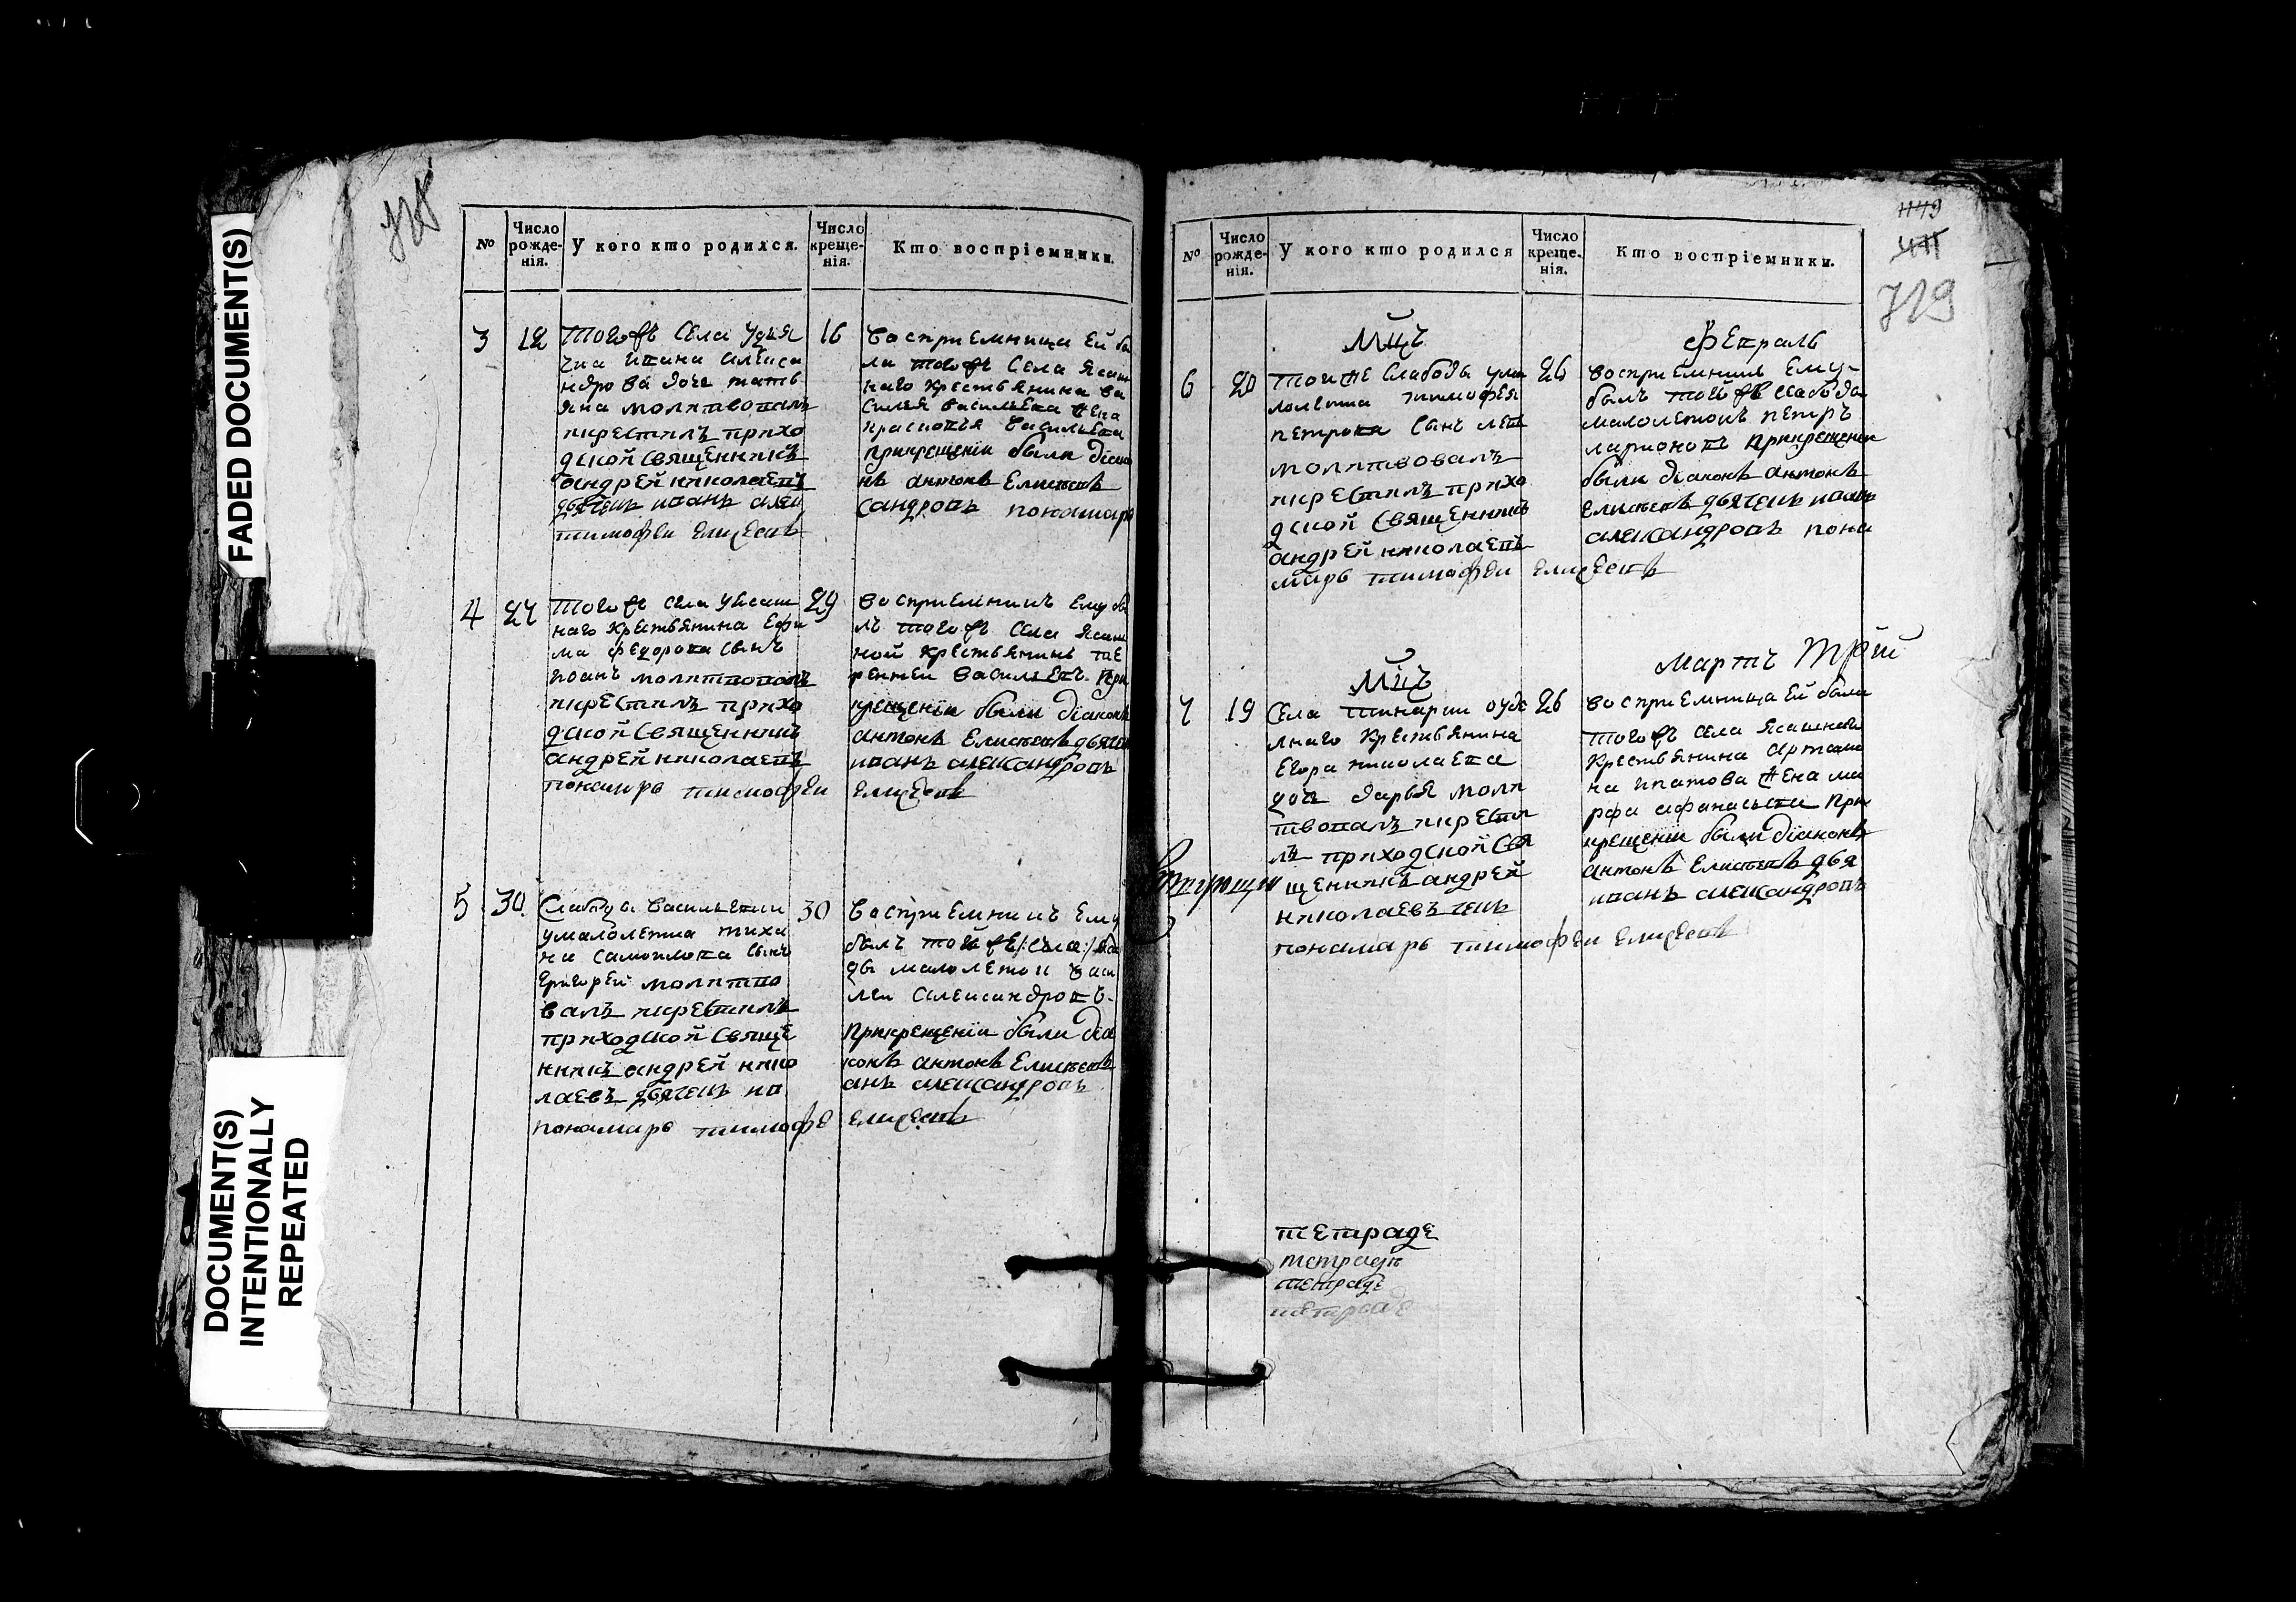 FADED DOCUMENT(S)
DOCUMENT(S)
INTENTIONALLY
REPEATED
№
Число рожде-нія.
У кого кто родился.
Число креще-нія.
Кто воспріемники.
3
12
16
тогожъ села удья
чка ивана алекса
ндрова дочь тать
яна молитвовалъ
икрестилъ прихо
дской священникъ
андрей николаевъ
дьячекъ иванъ алек
тимофеи елисеевъ
восприемница ей бы
ла тогожъ села ясаш
наго крестьянина ва
силья васильева жена
васильева
прикрещении были диако
нъ антонъ
сандровъ понамарь
4
27
29
тогожъ села уясаш
наго крестьянина ефи
ма федорова сынъ
иоанъ молитвовалъ
икрестилъ прихо
дской священникъ
андрей николаевъ
понамарь тимофеи елисеевъ
восприемникъ ему бы
лъ тогожъ села ясаш
ной крестьянинъ те
рентеи васильевъ при
крещении были диаконъ
антонъ дьячекъ
иванъ александровъ
5
30
30
слабоды васильевки
умалолетка тиха
на самойлова сынъ
григорей молитво
валъ икрестилъ
приходской свяще
нникъ андрей нико
лаевъ дьячекъ ив
понамарь тимофе елисеевъ
восприемникъ ему
былъ тойже
ды малолетои васи
леи александровъ
прикрещении были диа
конъ антонъ
анъ александровъ
№
Число рожде-нія.
У кого кто родился
Число креще-нія.
Кто воспріемники.
719
мцъ
февраль
6
20
26
тоиже слабоды ума
лолетка тимофея
петрова сынъ
молитвовалъ
икрестилъ прихо
дской священникъ
андрей николаевъ
марь тимофеи елисеевъ
восприемникъ ему
былъ тойже слабоды
малолетокъ петръ
ларионовъ прикрещении
были диаконъ антонъ
дьячекъ иванъ
александровъ пона
мцъ
мартъ
7
19
26
села
лнаго крестьянина
егора николаева
дочь дарья моли
твовалъ икрести
лъ приходской свя
щенникъ андрей
николаевъ чекъ
понамарь тимофеи елисеевъ
восприемница ей была
тогожъ села ясашнаго
крестьянина артамо
на ипатова жена ма
рфа афанасьева при
крещении были диаконъ
антонъ дья
иванъ александровъ
тетраде
тетради
тетраде
тетраде